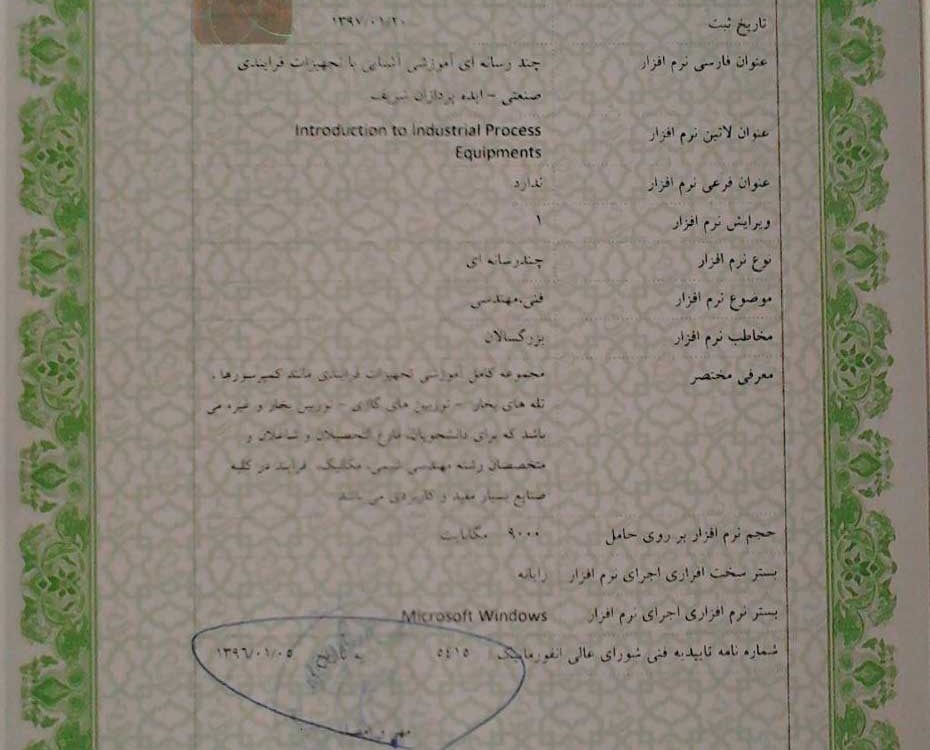 تاریخ ثبت ۱۳۹۷/۰۱/۲۰
عنوان فارسی نرم افزار چند رسانه ای آموزشی آشنایی با تجهیزات فرایندی
صنعتی - ایده پردازان شریف
عنوان لاتین نرم افزار Introduction to Industrial Process
Equipments
عنوان فرعی نرم افزار ندارد
ویرایش نرم افزار ۱
نوع نرم افزار چندرسانه ای
موضوع نرم افزار فنی،مهندسی
مخاطب نرم افزار بزرگسالان
معرفی مختصر مجموعه کامل آموزشی تجهیزات فرایندی مانند کمپرسورها ،
تله های بخار - توربین های گازی - توربین بخار و غیره می
باشد که برای دانشجویان، فارغ التحصیلان و شاغلان و
متخصصان رشته مهندسی شیمی، مکانیک، فرایند در کلیه
صنایع بسیار مفید و کاربردی می باشد
حجم نرم افزار بر روی حامل ۹۰۰۰ مگابایت
بستر سخت افزاری اجرای نرم افزار رایانه
بستر نرم افزاری اجرای نرم افزار Microsoft Windows
شماره نامه تاییدیه فنی شورای عالی انفورماتیک ٥٤١٥ ۱۳۹٦/۰۱/۰٥
مهر و امضاء